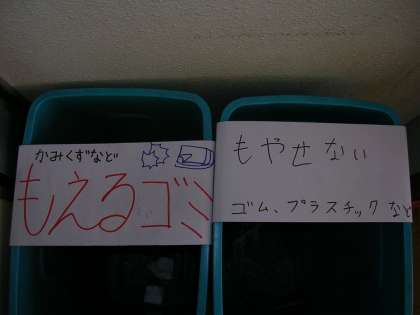 かみくずなど
もえるゴミ
もやせない
ゴム、プラスチックなど